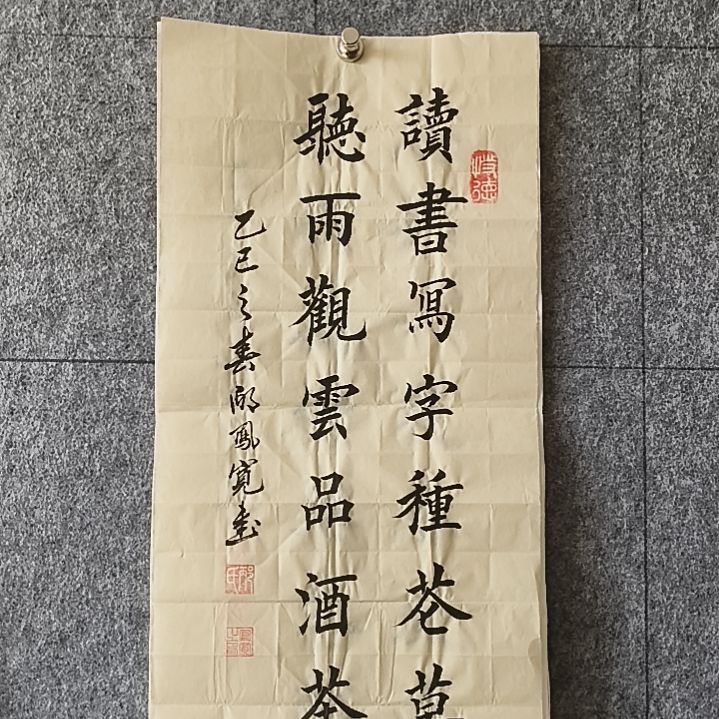 讀書寫字種花草
聽雨觀雲品酒茶
乙巳之春
鳳寬書